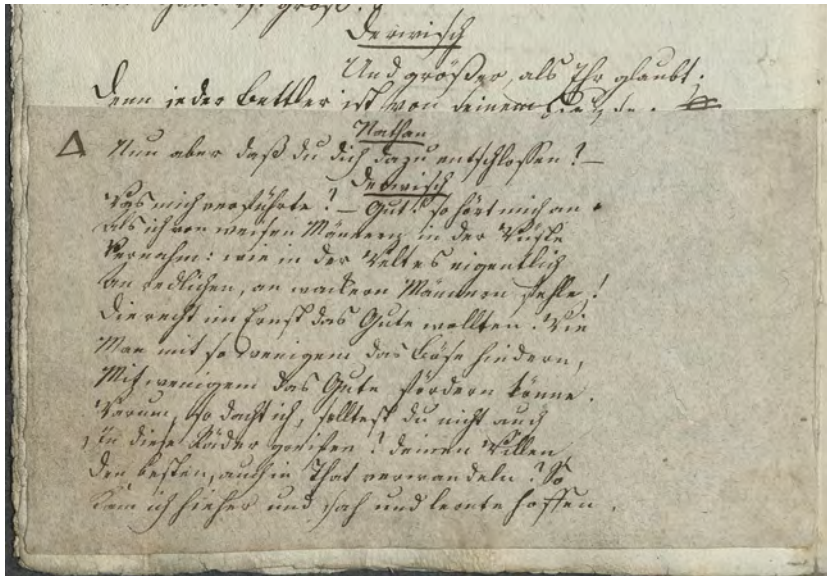 den Hand ist groß.
Derwisch
Und größer, als Ihr glaubt.
Denn jeder Bettler ist von deinem
Nathan
Nun aber daß du dich dazu entschlossen? —
Derwisch
Was mich verführte? — Gut! so hört mich an.
Als ich von weisen Männern in der Wüste
Vernahm: wie in der Welt es eigentlich
An redlichen, an wackern Männern fehle,!
Die recht im Ernst das Gute wollten. Wie
Man mit so wenigem das Böse hindern,
Mit wenigem das Gute fördern könne.
Warum, so dacht ich, solltest du nicht auch
In diese Räder greifen? deinen Willen,
Den besten, auch in That verwandeln? So
Kam ich hieher und sah und lernte hoffen.